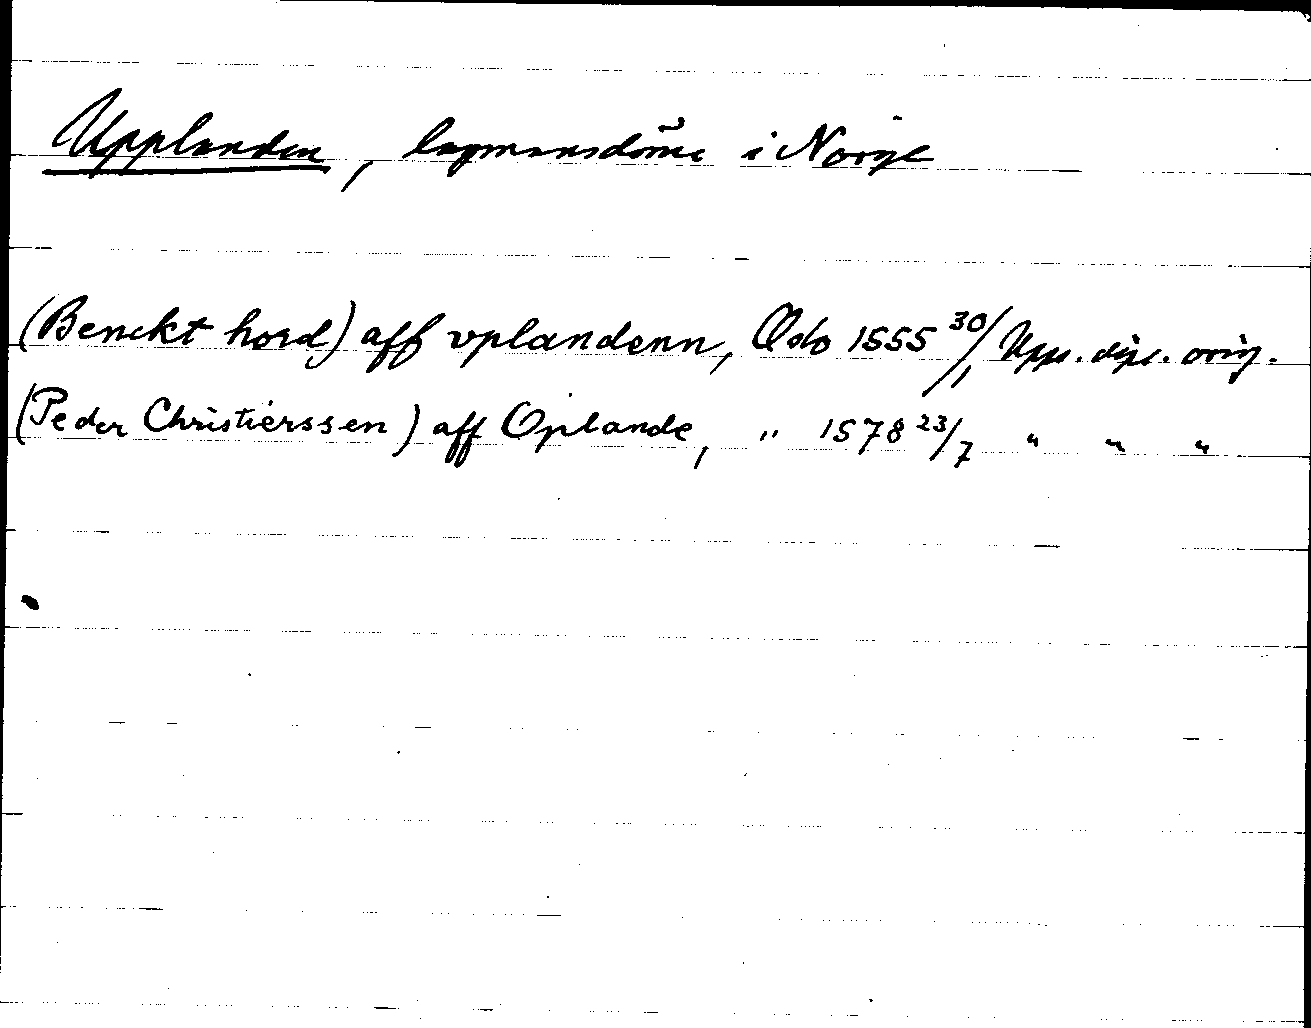 Upplanden, lagmansdöme i Norge
(Benckt hord) aff vplandenn, Oslo 1555 30/1 Upps. dipl. orig.
(Peder Christierssen) aff Oplande, " 1578 23/7 " " "